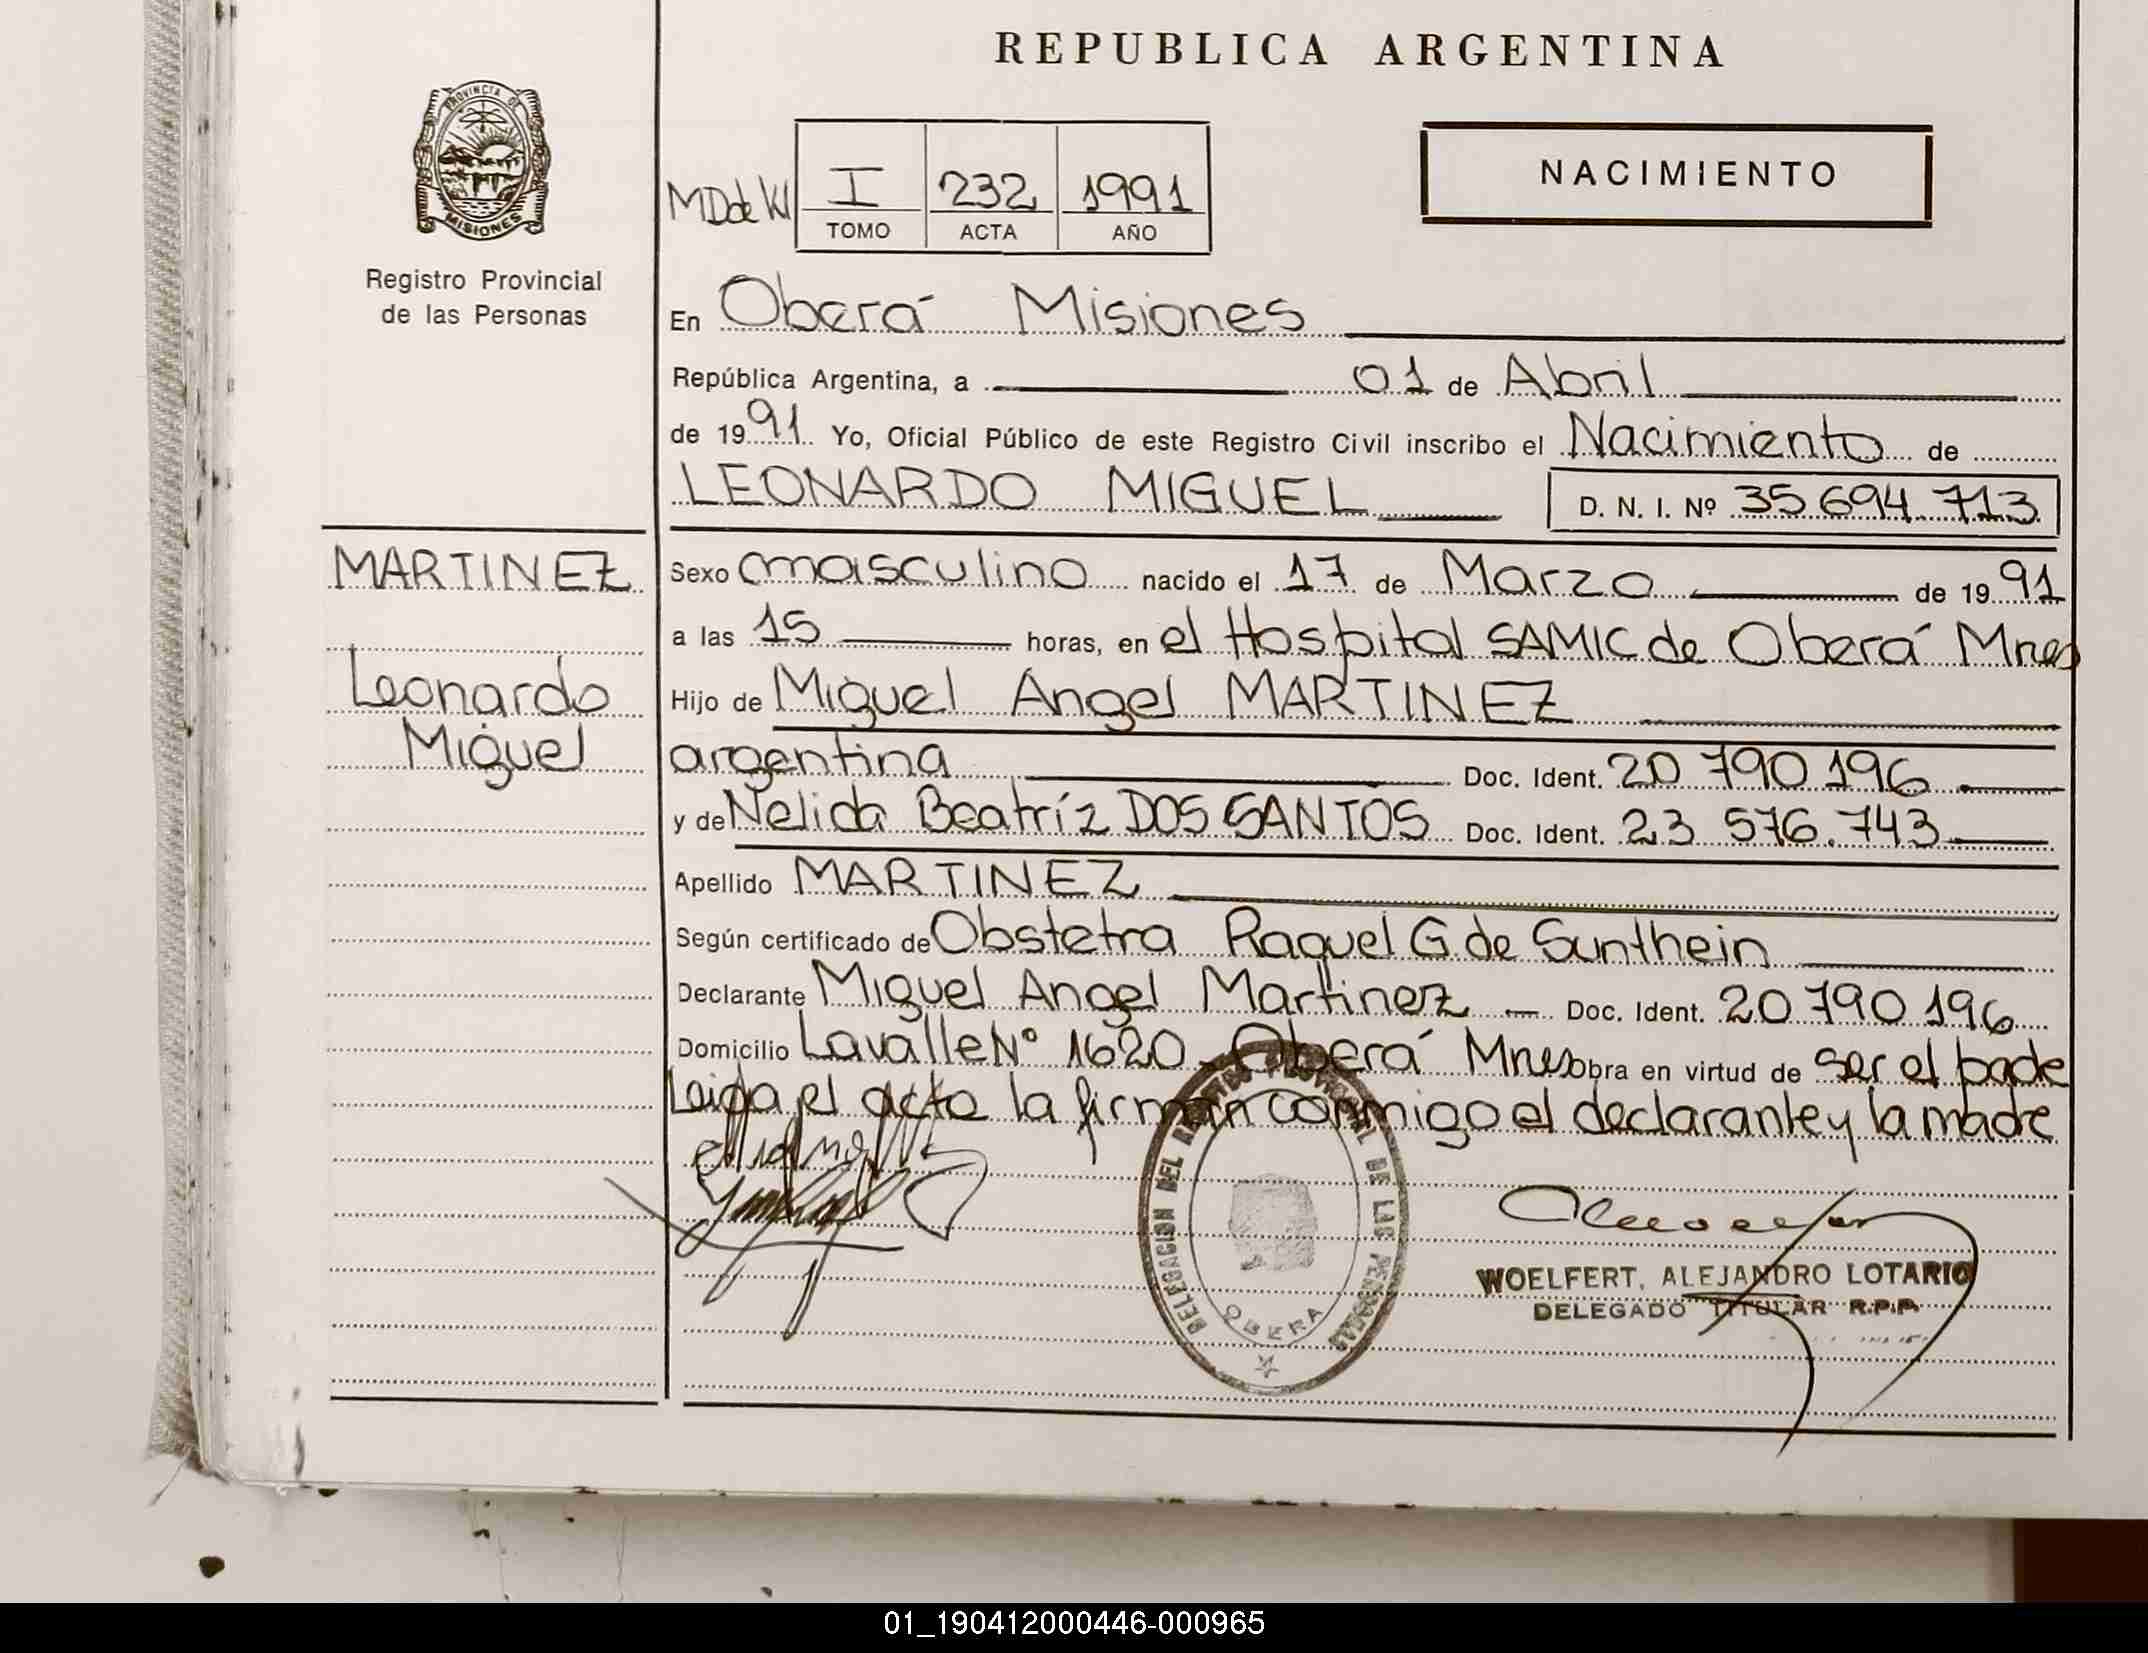 REPUBLICA ARGENTINA
PROVINCIA DE
MISIONES
Registro Provincial
de las Personas
MARTINEZ
Leonardo
Miguel
I 232 1991
TOMO ACTA AÑO
NACIMIENTO
En Oberá Misiones
República Argentina, a 01 de Abril
de 1991 Yo, Oficial Público de este Registro Civil inscribo el Nacimiento de
LEONARDO MIGUEL D. N. I. Nº 35 694 713
Sexo masculino nacido el 17 de Marzo de 1991
a las 15 horas, en el Hospital SAMIC de Oberá Mnes
Hijo de Miguel Angel MARTINEZ
argentina Doc. Ident. 20 790 196
y de Nelida Beatríz DOS SANTOS Doc. Ident. 23 576.743
Apellido MARTINEZ
Según certificado de Obstetra Raquel G. de Sunthein
Declarante Miguel Angel Martinez Doc. Ident. 20 790 196
Domicilio Lavalle Nº 1620 Oberá Mnes obra en virtud de ser el padre
Leida el acta la firman conmigo el declarante y la madre
DELEGACION DEL REGISTRO PROVINCIAL DE LAS PERSONAS
OBERA
WOELFERT, ALEJANDRO LOTARIO
DELEGADO TITULAR R.P.P.
01_190412000446-000965